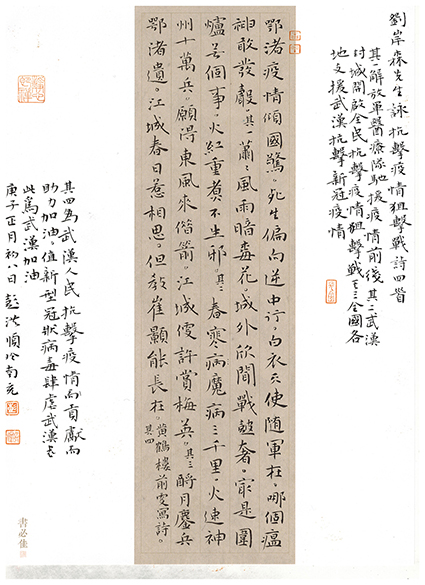 劉岸森先生詠抗擊疫情狙擊戰詩四首
其一解放軍醫療隊馳援疫情前後 其二武漢
封城開啟全民抗擊疫情狙擊戰 其三全國各
地支援武漢抗擊新冠疫情
鄂渚疫情傾國驚。死生偏向逆中行。白衣天使隨軍在,哪個瘟
神敢發聲 其一 蕭蕭風雨暗毒花。城外欣聞戰鼓奢。寂是圍
爐無個事,火紅重煮不生邪。其二 春寒病魔病三千里,火速神
州十萬兵。願得東風來借箭。江城便許賞梅英。其三 醉月鏖兵
鄂渚遺。江城春日惹相思。但教崔顥能長在。黃鶴樓前更寫詩。
其四
其四為武漢人民抗擊疫情而貢獻而
助力加油,值新型冠狀病毒肆虐武漢
此為武漢加油
庚子正月初八日彭洪順於南充
書必佳